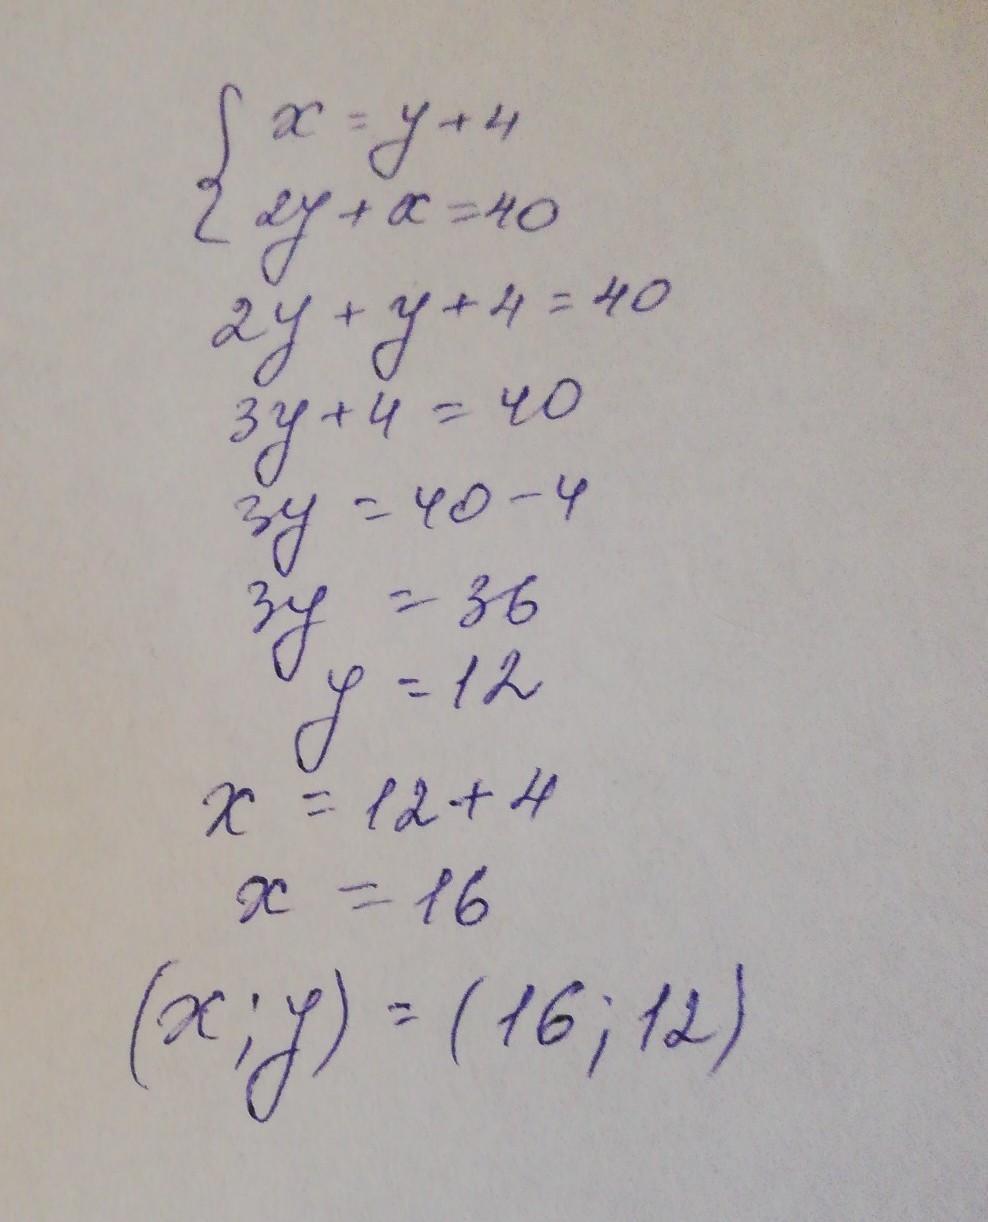 { x = y + 4
2y + x = 40
2y + y + 4 = 40
3y + 4 = 40
3y = 40 - 4
3y = 36
y = 12
x = 12 + 4
x = 16
(x; y) = (16; 12)